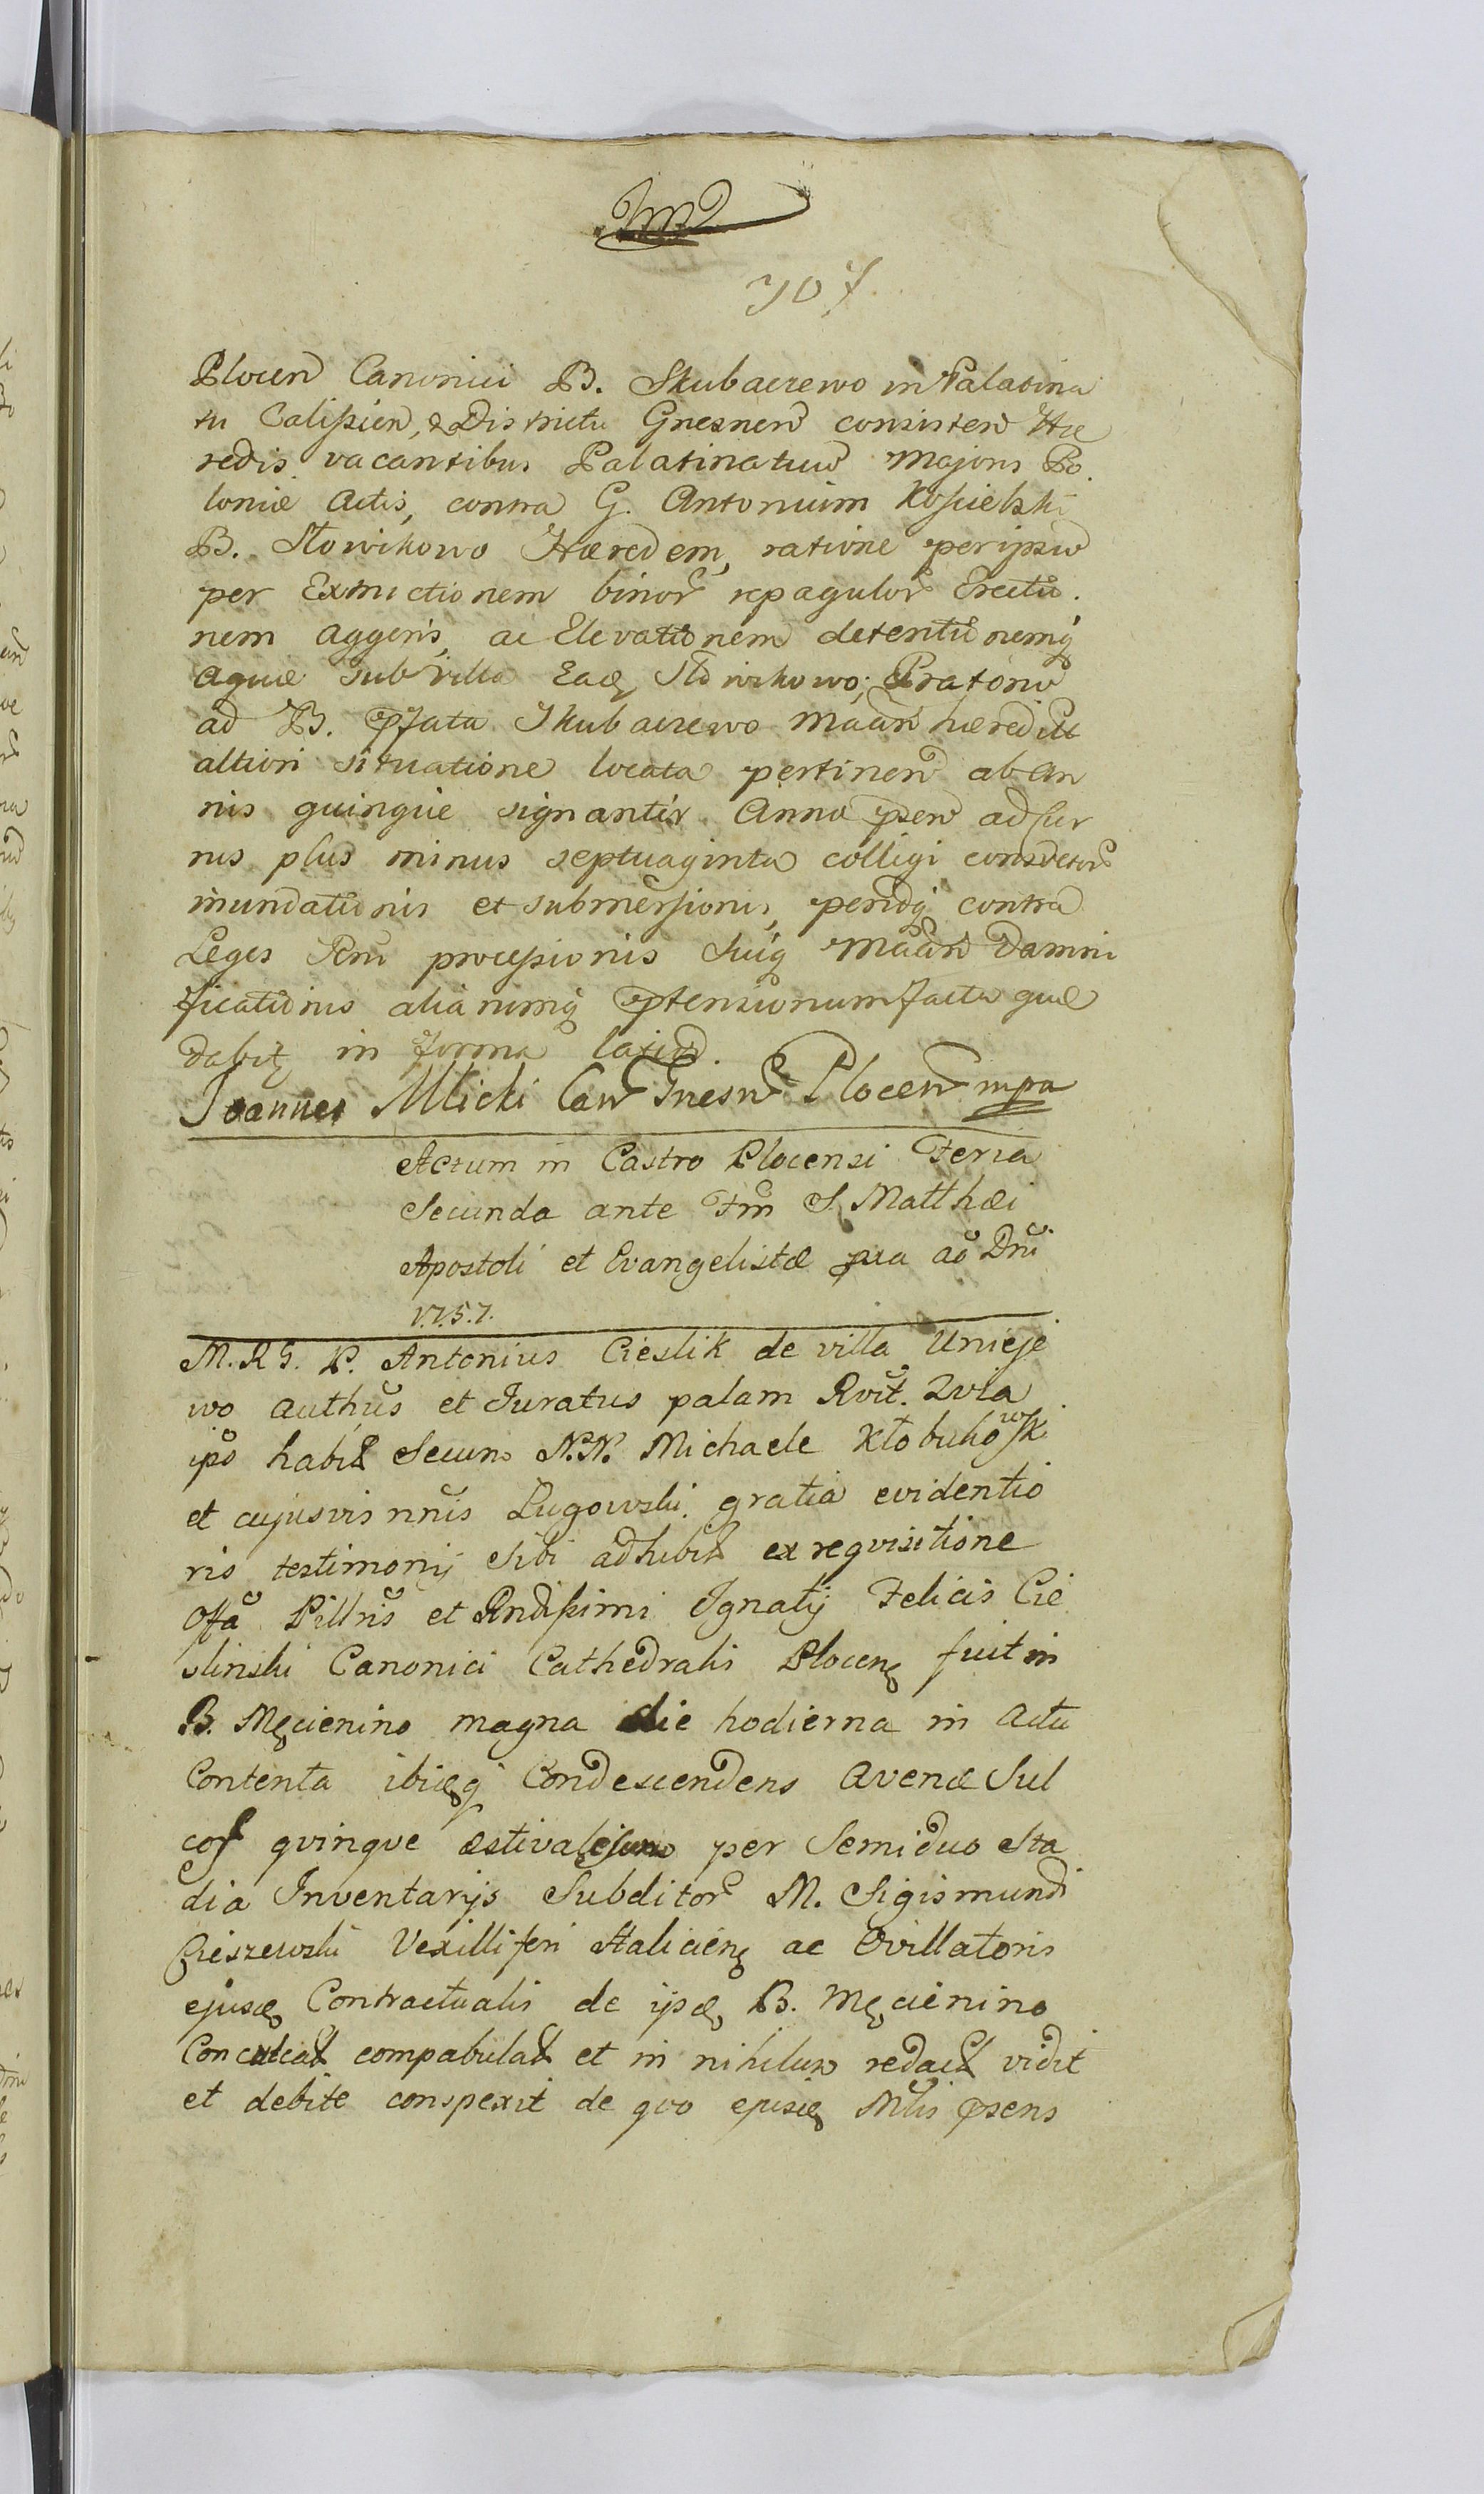 707
Plocen Canonici B. Skubaczewo in Palatina
tu Calissien, & Districtu Gnesnen consisten Hæ
redis vacantibus Palatinatuu Majoris Po
loniæ Actis, contra G. Antonium Kossielski
B. Słowikowo Hæredem, ratione per ipsu
per Extructionem binor repagulor Erectio
nem aggeris, ac Elevationem detentionemq
aquæ sub villa Ead Słowikowo; Pratoru
ad B. pfata Skubaczewo Mãan hæredit
altiori situatione locata pertinen ab an
nis quinque signanter Anno psen ad cur
rus plus minus septuaginta colligi consvetor
inundationis et submersionis, peridq contra
Leges Rni processionis suiq Mãan Damni
ficationis aliarumq ptensionum facta quæ
dabit in forma latiori.
Joannes Mlicki Can Gnesn Plocen mpa
Actum in Castro Plocensi Feria
Secunda ante Fm S. Matthæi
Apostoli et Evangelistæ pxa aõ Dni
1757.
M. R G. P. Antonius Cieslik de villa Unieje
wo authũs et Juratus palam Rvit. Qvia
ipõ habit Secum N.N. Michaele Kłobukowski
et cujusvis nnis Ługowski gratia evidentio
ris testimonij sibi adhibit ex reqvisitione
Offã Pillris et Rndissimi Ignatij Felicis Cie
slinski Canonici Cathedralis Plocen fuit in
B. Męcienino magna die hodierna in actu
Contenta ibidq Condescendens avenæ Sul
cos qvinqve æstivales per Semiduo Sta
dia Inventarijs Subditor M. Sigismundi
Cieszewski Vexilliferi Halicien ac Ovillatoris
ejusd Contractualis de ipsd B. Męcienino
Conculcat compabulat et in nihilum redact vidit
et debite conspexit de qvo ejusd Mtis psens